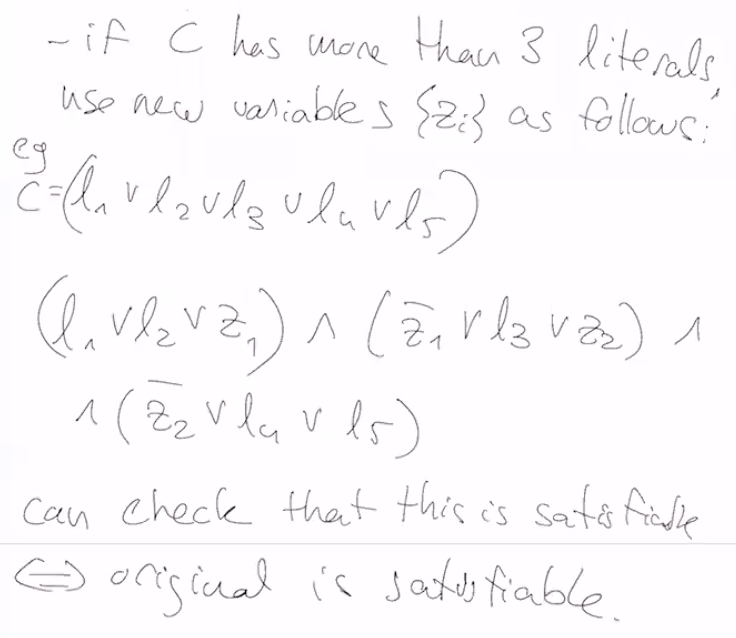 - if C has more than 3 literals,
use new variables {zᵢ} as follows:
eg
C=(l₁ ∨ l₂ ∨ l₃ ∨ l₄ ∨ l₅)
(l₁ ∨ l₂ ∨ z₁) ∧ (z̄₁ ∨ l₃ ∨ z₂) ∧
∧ (z̄₂ ∨ l₄ ∨ l₅)
can check that this is satisfiable
⇔ original is satisfiable.